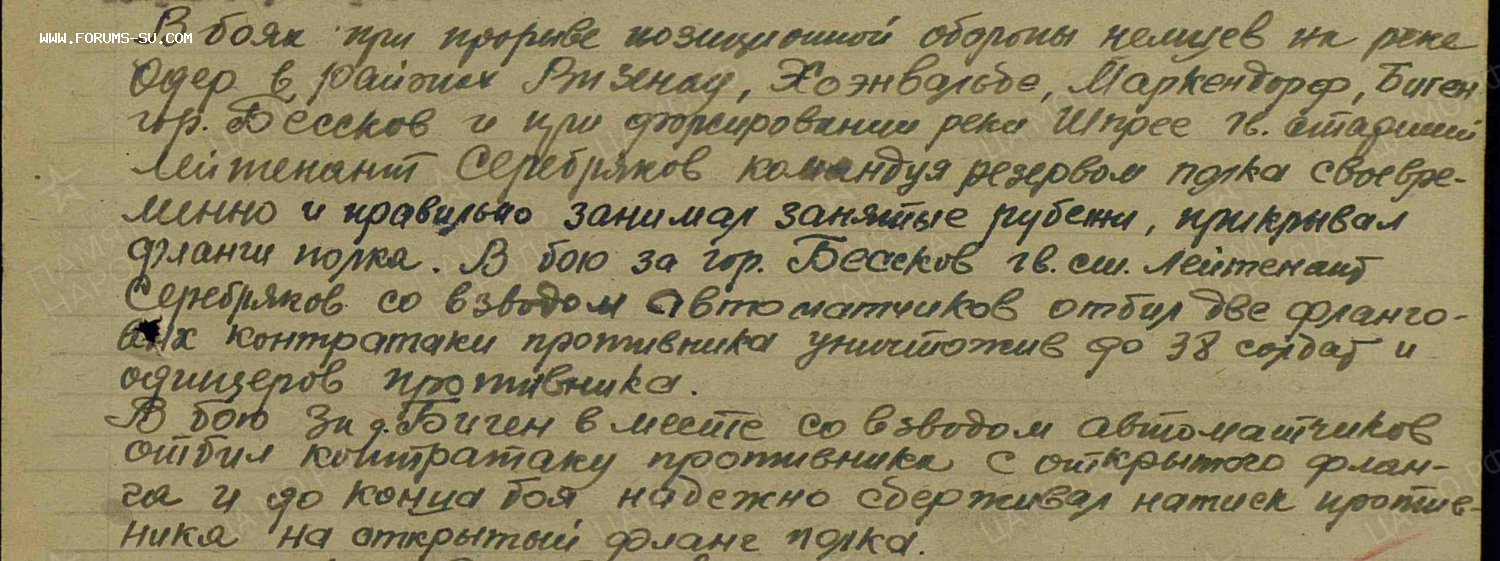 WWW.FORUMS-SU.COM
В боях при прорыве позиционной обороны немцев на реке
Одер в районах Ризенау, Хоэнвальде, Маркендорф, Биген
гор. Бессков и при форсировании реки Шпрее гв. старший
лейтенант Серебряков командуя резервом полка своевре-
менно и правильно занимал занятые рубежи, прикрывал
фланги полка. В бою за гор. Бессков гв. ст. лейтенант
Серебряков со взводом автоматчиков отбил две фланго-
вых контратаки противника уничтожив до 38 солдат и
офицеров противника.
В бою за д. Биген в месте со взводом автоматчиков
отбил контратаку противника с открытого флан-
га и до конца боя надежно сдерживал натиск против-
ника на открытый фланг полка.